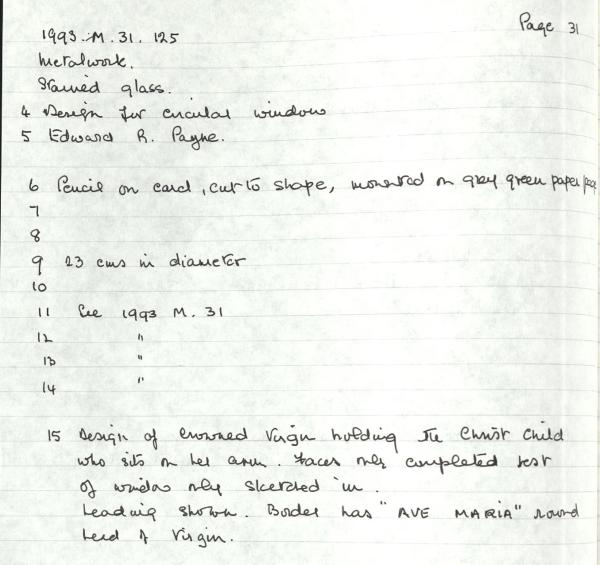 Page 31
1993. M. 31. 125
Metalwork.
Stained glass.
4 Design for circular window
5 Edward R. Payne.
6 Pencil on card, cut to shape, mounted on grey green paper
7
8
9 23 cms in diameter
10
11 See 1993 M. 31
12 "
13 "
14 "
15 Design of crowned Virgin holding the Christ Child
who sits on her arm. Faces only completed rest
of window only sketched in.
Leading shown. Border has "AVE MARIA" round
head of Virgin.